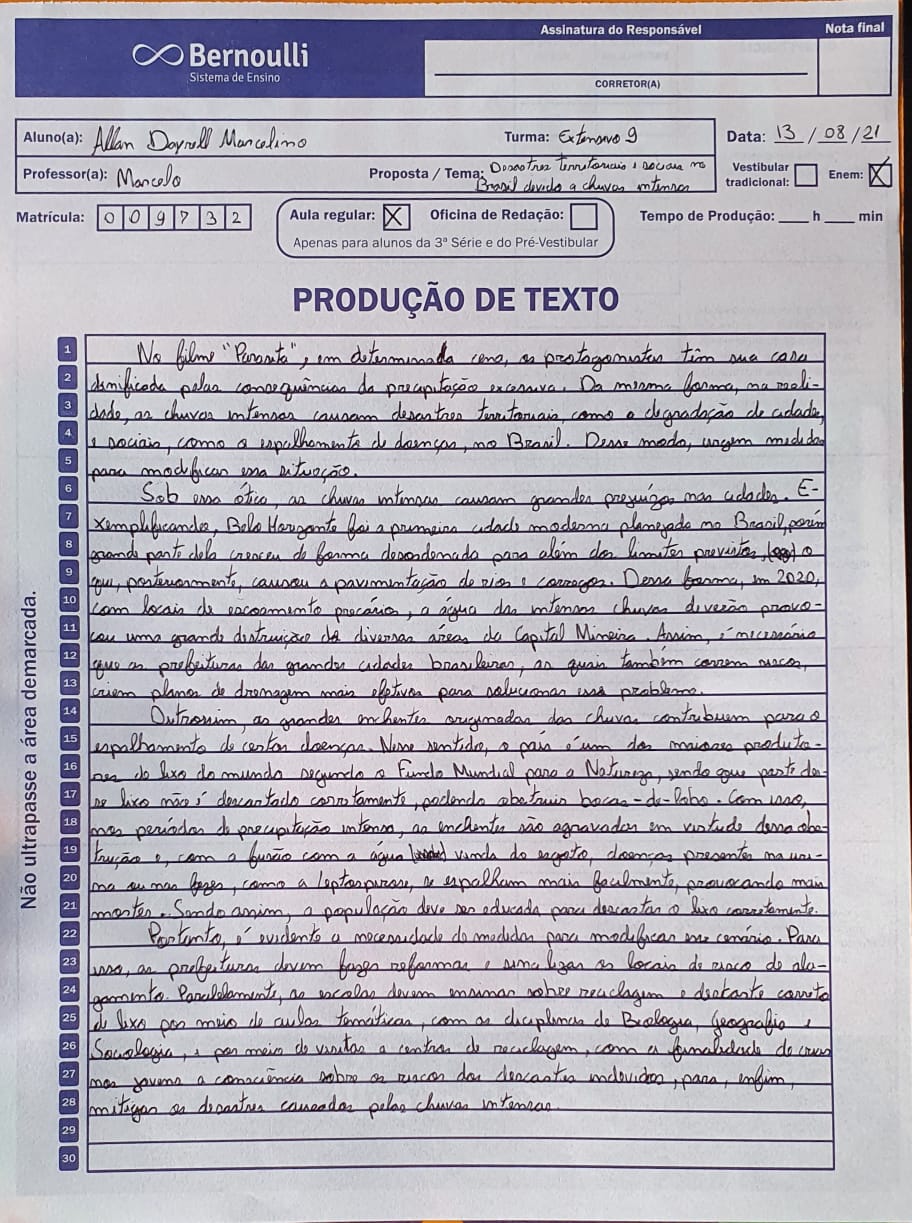 Bernoulli
Sistema de Ensino
Assinatura do Responsável
Nota final
CORRETOR(A)
Aluno(a): Allan Dayrell Marcelino
Turma: Extensivo 9
Data: 13 / 08 / 21
Professor(a): Marcelo
Proposta / Tema: Desastres territoriais e sociais no
Brasil devido a chuvas intensas
Vestibular tradicional:
Enem: X
Matrícula: 009732
Aula regular: X
Oficina de Redação:
Apenas para alunos da 3ª Série e do Pré-Vestibular
Tempo de Produção: ____ h ____ min
PRODUÇÃO DE TEXTO
Não ultrapasse a área demarcada.
1 No filme "Parasita", em determinada cena, os protagonistas têm sua casa
2 danificada pelas consequências da precipitação excessiva. Da mesma forma, na reali-
3 dade, as chuvas intensas causam desastres territoriais, como a degradação de cidades,
4 e sociais, como o espalhamento de doenças, no Brasil. Desse modo, urgem medidas
5 para modificar essa situação.
6 Sob essa ótica, as chuvas intensas causam grandes prejuízos nas cidades. E-
7 xemplificando, Belo Horizonte foi a primeira cidade moderna planejada no Brasil, porém
8 grande parte dela cresceu de forma desordenada para além dos limites previstos, o
9 que, posteriormente, causou a pavimentação de rios e córregos. Dessa forma, em 2020,
10 com locais de escoamento precários, a água das intensas chuvas de verão provo-
11 cou uma grande destruição de diversas áreas da Capital Mineira. Assim, é necessário
12 que as prefeituras das grandes cidades brasileiras, as quais também correm riscos,
13 criem planos de drenagem mais efetivos para solucionar esse problema.
14 Outrossim, as grandes enchentes originadas das chuvas contribuem para o
15 espalhamento de certas doenças. Nesse sentido, o país é um dos maiores produto-
16 res de lixo do mundo segundo o Fundo Mundial para a Natureza, sendo que parte des-
17 se lixo não é descartado corretamente, podendo obstruir bocas-de-lobo. Com isso,
18 nos períodos de precipitação intensa, as enchentes são agravadas em virtude dessa obs-
19 trução e, com a fusão com a água vinda do esgoto, doenças presentes na uri-
20 na ou nas fezes, como a leptospirose, se espalham mais facilmente, provocando mais
21 mortes. Sendo assim, a população deve ser educada para descartar o lixo corretamente.
22 Portanto, é evidente a necessidade de medidas para modificar esse cenário. Para
23 isso, as prefeituras devem fazer reformas e sinalizar os locais de risco de ala-
24 gamento. Paralelamente, as escolas devem ensinar sobre reciclagem e descarte correto
25 de lixo por meio de aulas temáticas, com as disciplinas de Biologia, Geografia e
26 Sociologia, e por meio de visitas a centros de reciclagem, com a finalidade de criar
27 nos jovens a consciência sobre os riscos dos descartes indevidos, para, enfim,
28 mitigar os desastres causados pelas chuvas intensas.
29
30